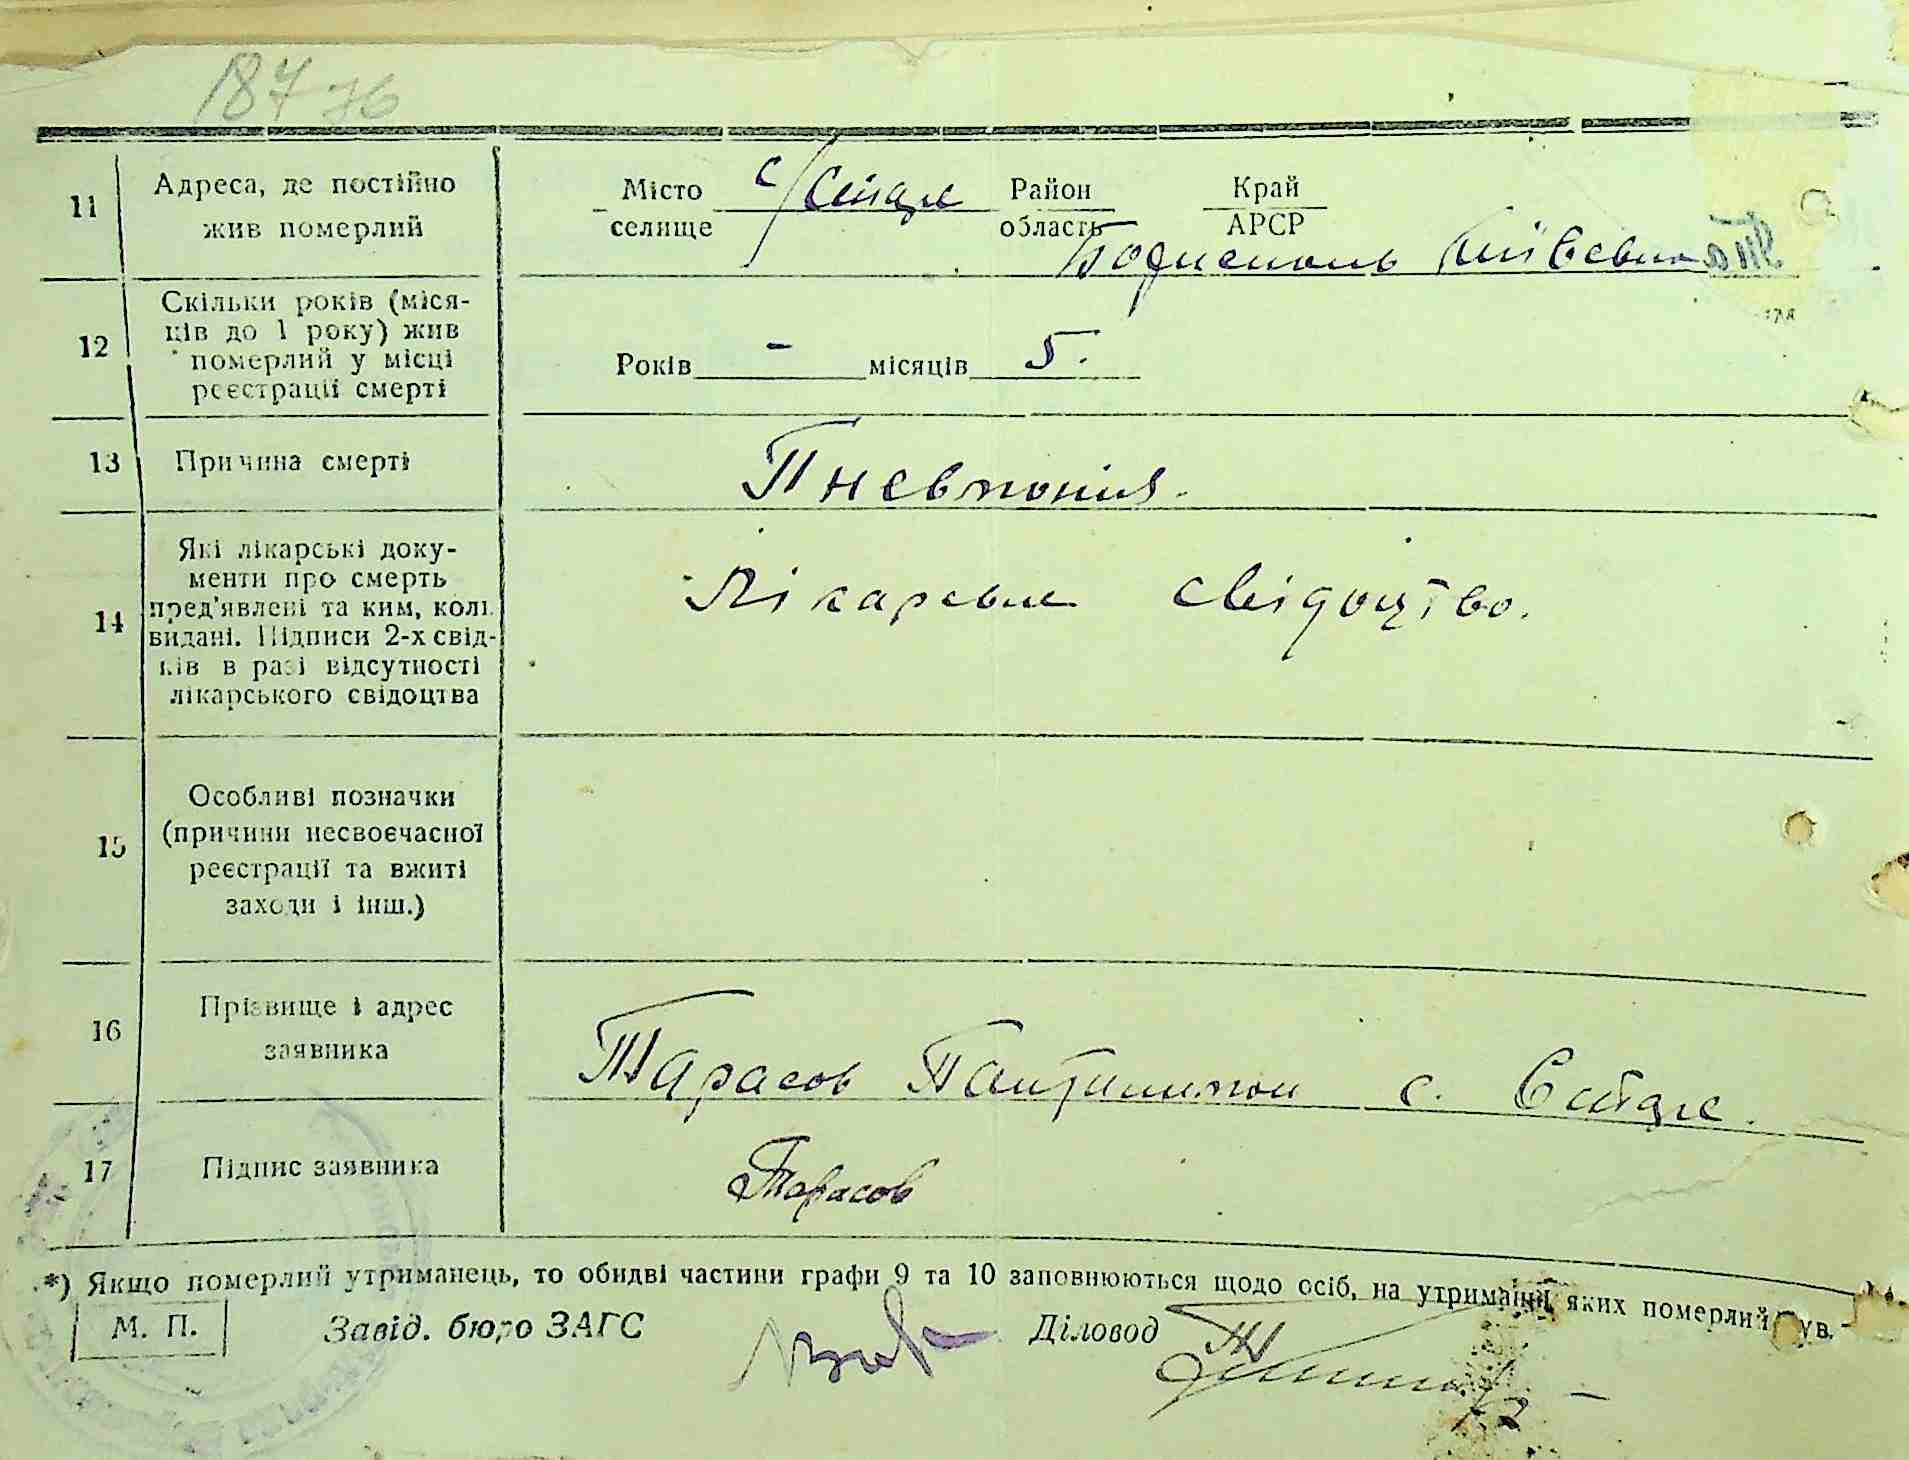 18776
11 Адреса, де постійно жив померлий
Місто селище с/Єтаре Район область Край АРСР
Бориспель Київської
12 Скільки років (міся-
ців до 1 року) жив
померлий у місці
реєстрації смерті
Років - місяців 5.
13 Причина смерті
Пневмонія.
14 Які лікарські доку-
менти про смерть
пред'явлені та ким, коли
видані. Підписи 2-х свід-
ків в разі відсутності
лікарського свідоцтва
Лікарське свідоцтво.
15 Особливі позначки
(причини несвоєчасної
реєстрації та вжиті
заходи і інш.)
16 Прізвище і адрес
заявника
Тарасов Пантилимон с.
17 Підпис заявника
Тарасов
*) Якщо померлий утриманець, то обидві частини графи 9 та 10 заповнюються щодо осіб, на утриманні яких померлий був.
М. П. Завід. бюро ЗАГС Діловод